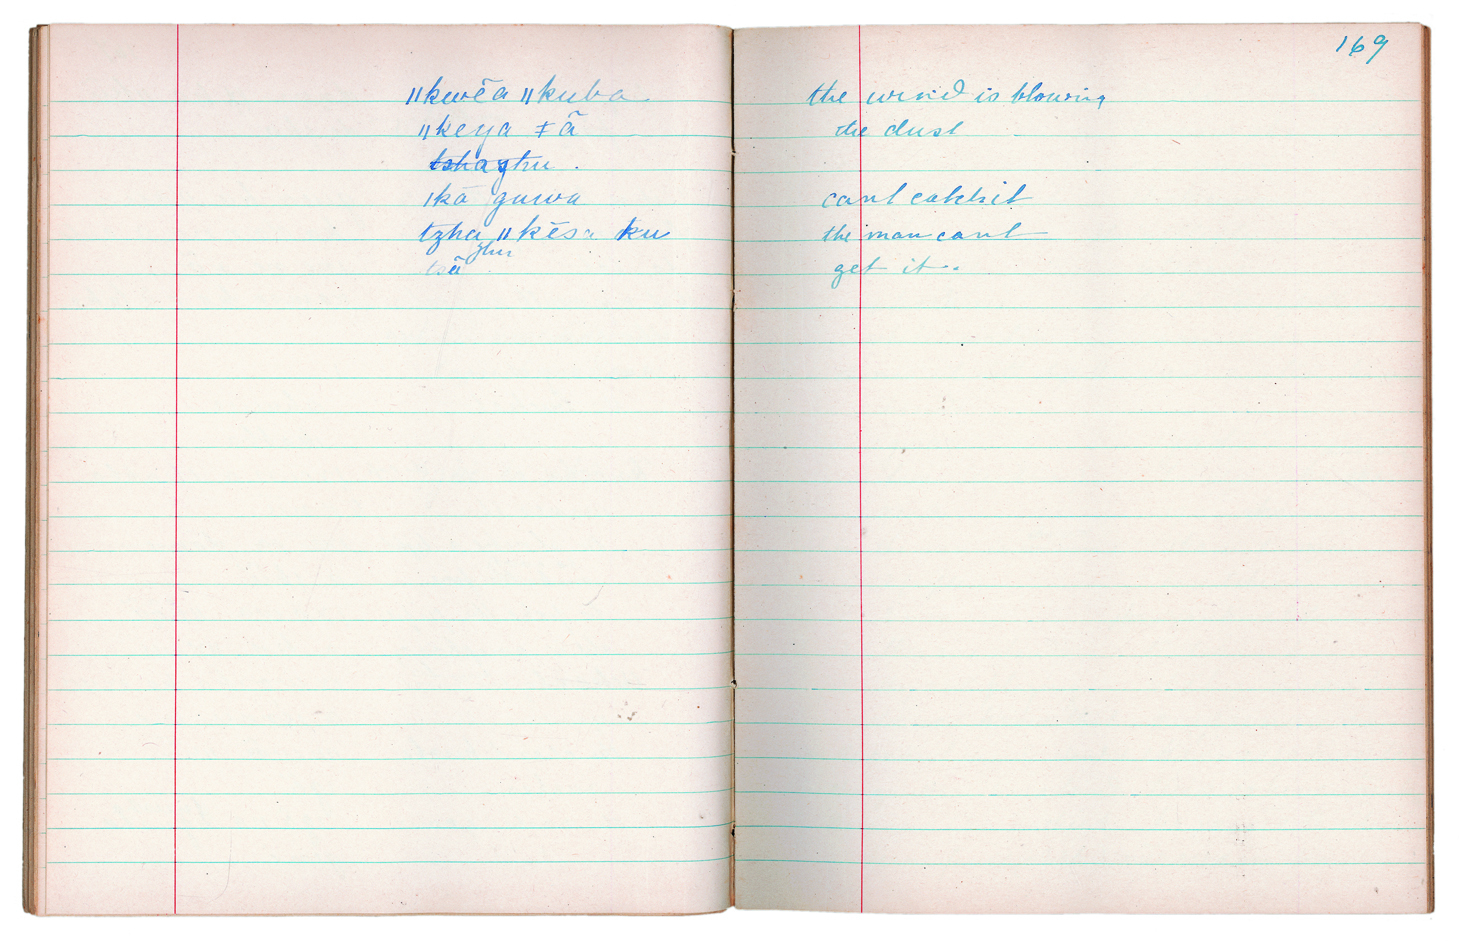 ǁkuvĕa ǁkuba
ǁkeya ǂã
tshaghu .
ǀkā guwa
tzha ǁkēsa ku
zhu
tsā
169
the wind is blowing
the dust
cant catch it
the man cant
get it..